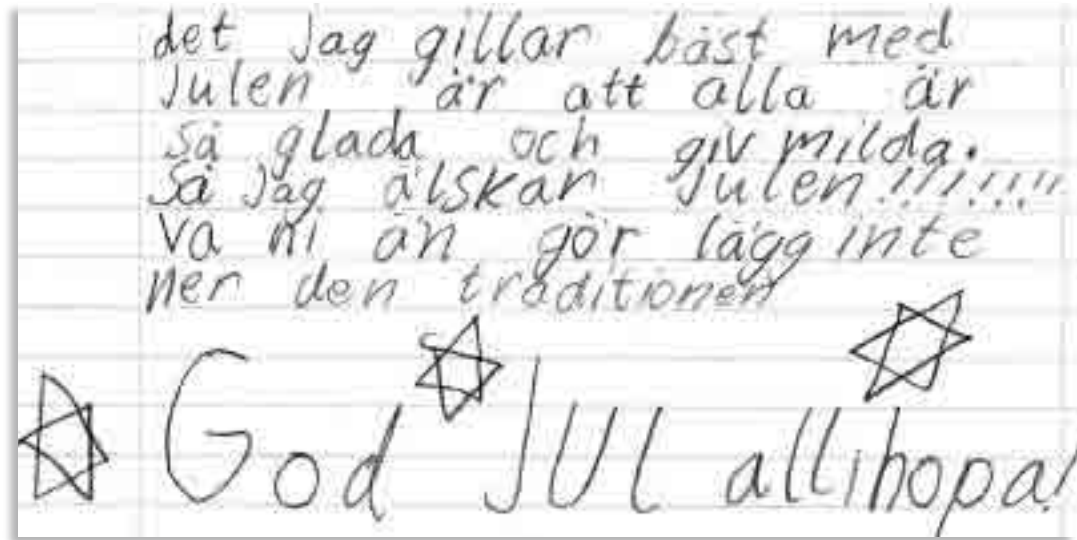 det Jag gillar bäst med
Julen är att alla är
så glada och giv milda.
så Jag älskar Julen!!!!!!!
va ni än gör lägg inte
ner den traditionen
God JUL allihopa!